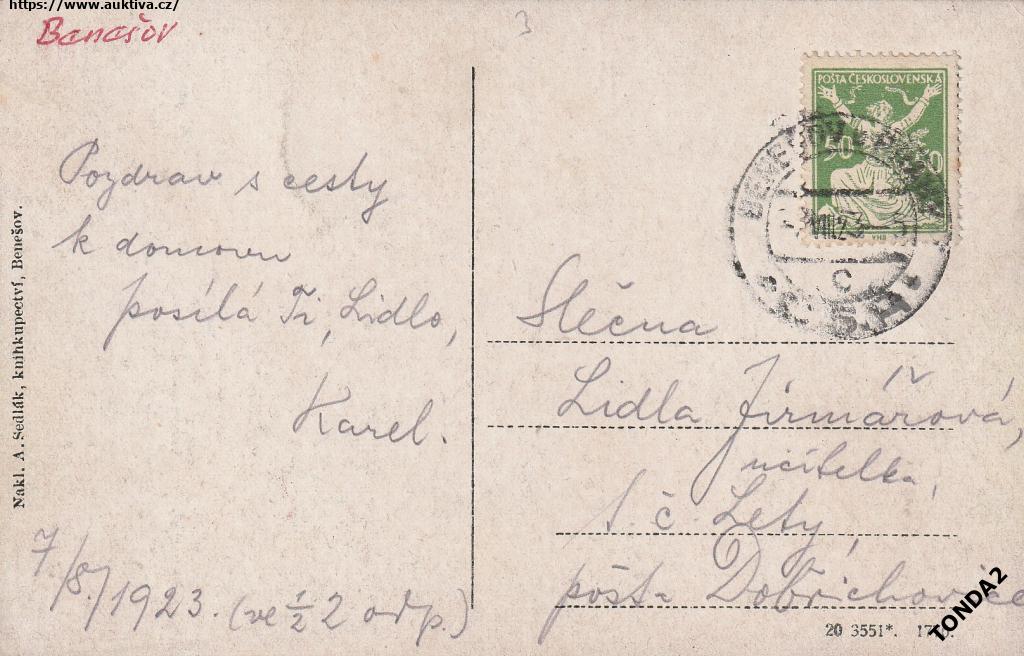 https://www.auktiva.cz/
Benešov
3
Pozdrav s cesty
k domovu
posílá Ti, Lidlo,
Karel.
7/8. 1923. (ve ½ 2 odp.)
Nakl. A. Sedlák, knihkupectví, Benešov.
POŠTA ČESKOSLOVENSKÁ
50
BENEŠOV
VIII 23
C
Č.S.R.
Slečna
Lidla Jirmářová,
učitelka,
t. č. Lety,
pošta Dobřichovice
20 3551*.
TONDA2